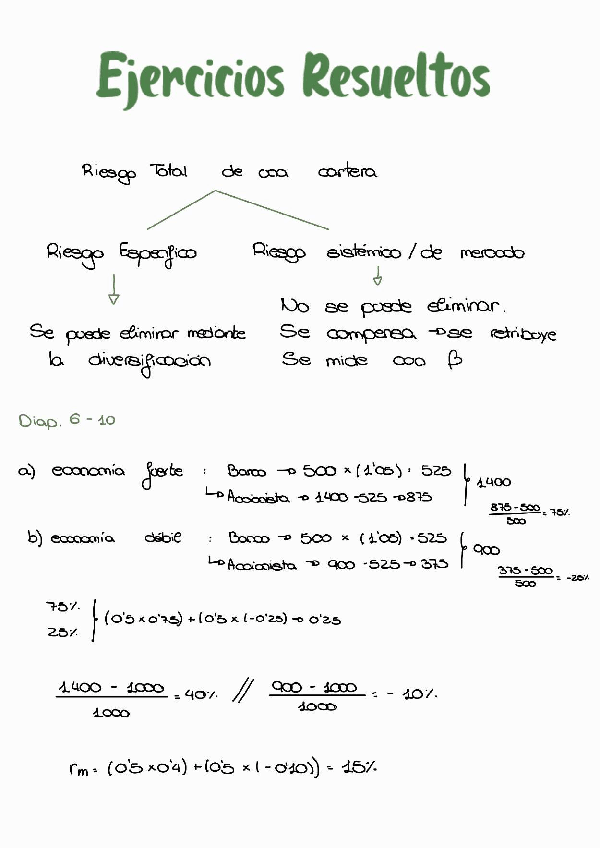 Ejercicios Resueltos
Riesgo Total de una cartera
Riesgo Específico
Riesgo sistémico / de mercado
Se puede eliminar mediante
la diversificación
No se puede eliminar.
Se compensa → se retribuye
Se mide con β
Diap. 6 - 10
a) economía fuerte : Banco → 500 × (1'05) = 525
↳ Accionista → 1400 - 525 → 875
1400
875 - 500 / 500 = 75%
b) economía débil : Banco → 500 × (1'05) = 525
↳ Accionista → 900 - 525 → 375
900
375 - 500 / 500 = -25%
75%
25%
(0'5 × 0'75) + (0'5 × (-0'25) → 0'25
1400 - 1000 / 1000 = 40% // 900 - 1000 / 1000 = - 10%
rm = (0'5 × 0'4) + (0'5 × (- 0'10)) = 15%